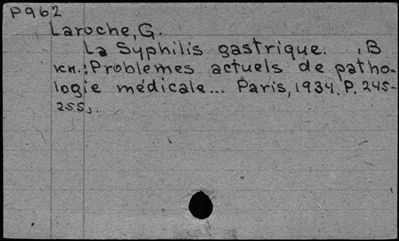 P962
Laroche, G.
La Syphilis gastrique. , В
кн.: Problèmes actuels de patho-
logie médicale... Paris, 1934. P. 245-
255.